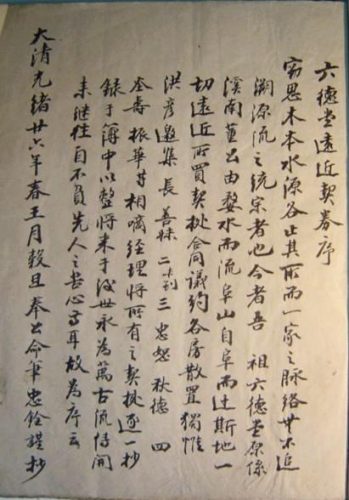 六德堂遠近契券序
窃思木本水源各止其所而一家之脉絡世不追
溯源流之統宗者也今者吾 祖六德堂原係
溪南薑呂由婺水而流阜山自阜而辻斯地一
切遠近所買契挑合同議約各房散置獨惟
洪彦邀集長善祩二 三忠恕秋德四
奎壽振華等相嘀经理將所有之契挑逐一抄
録于薄中以整將来于後世永為萬古流传闻
未继往自不負先人之苦心 耳故為序云
大清光緒廿六年春王月穀旦奉公命筆忠铨謹抄